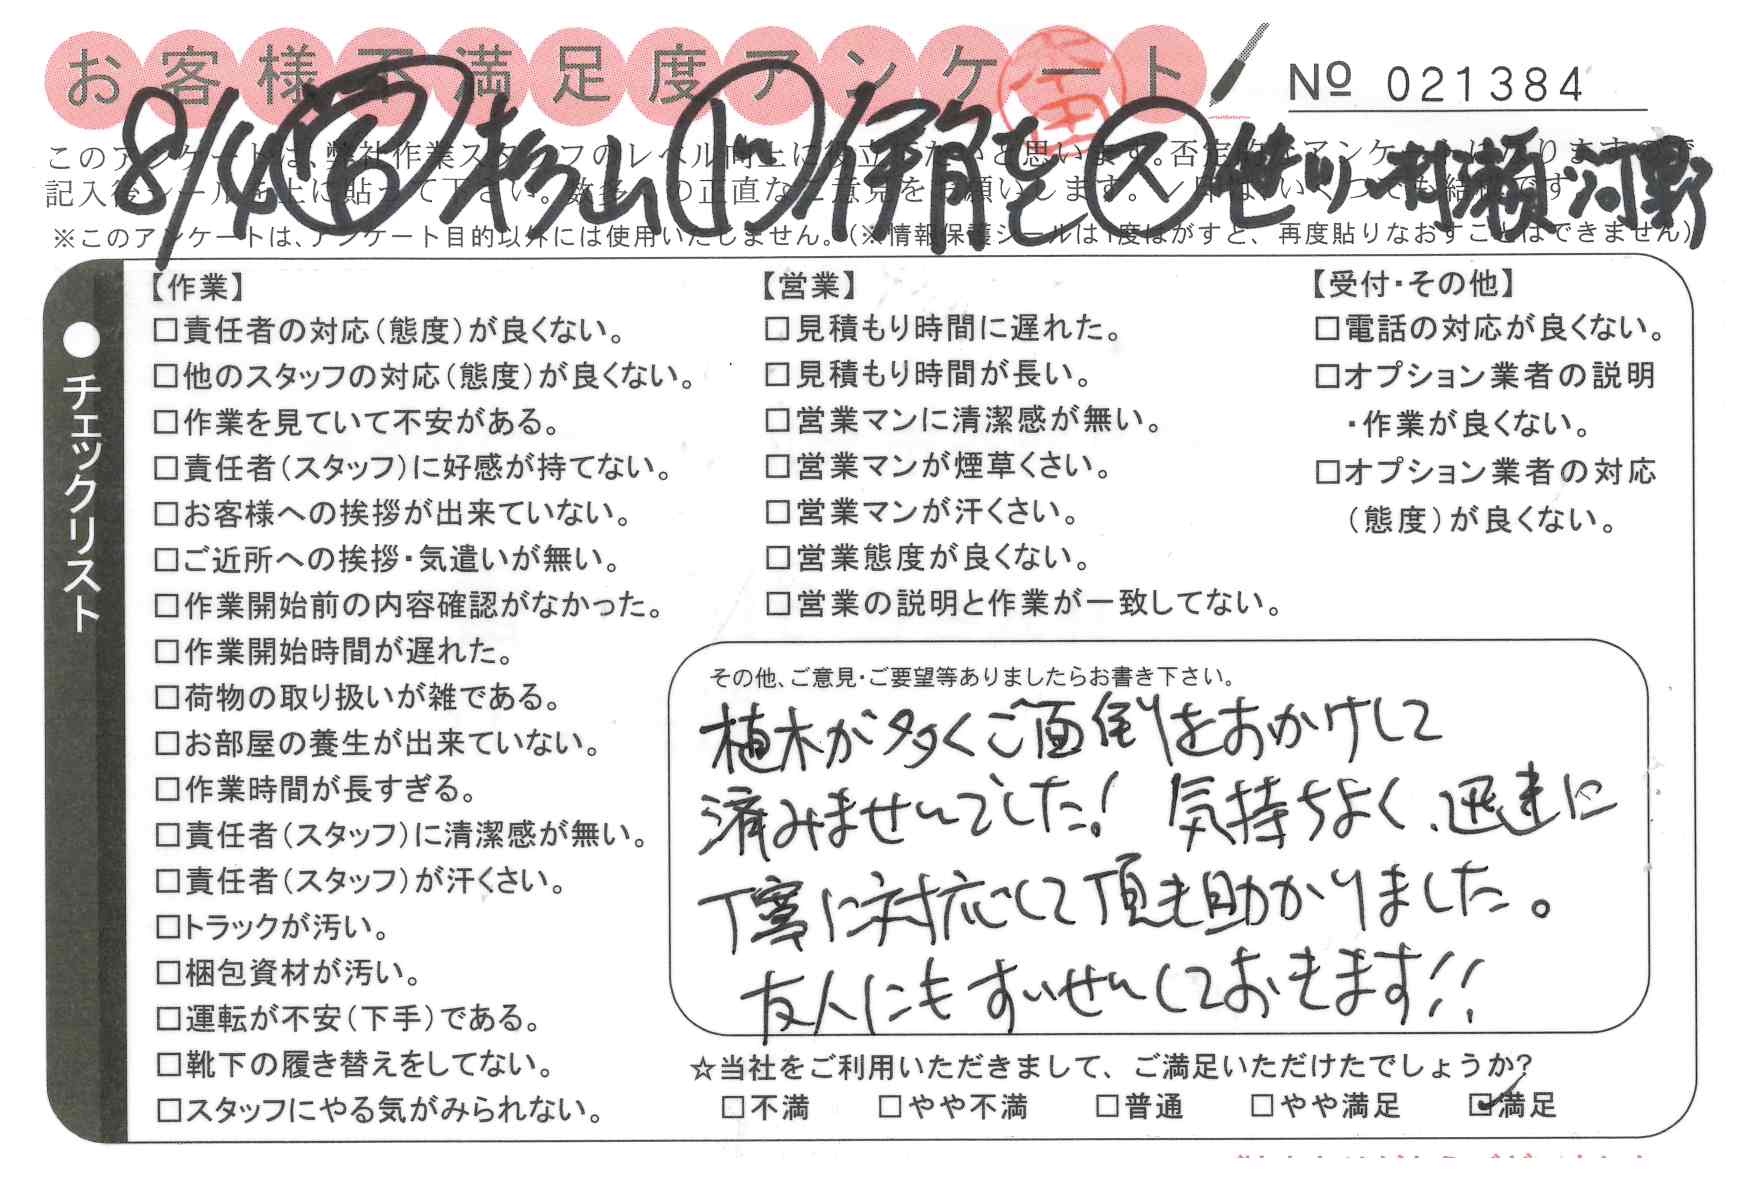 お客様不満足度アンケート
No 021384
8/4 営 杉山 ド 伊能 ス 世ツ 村瀬 河野
このアンケートは、弊社作業スタッフのレベル向上に役立てたいと思います。否定的なアンケートになりますので
記入後シールを上に貼って下さい。数多くの正直なご意見をお願いします。
※このアンケートは、アンケート目的以外には使用いたしません。(※情報保護シールは1度はがすと、再度貼りなおすことはできません)
●チェックリスト
【作業】
□責任者の対応(態度)が良くない。
□他のスタッフの対応(態度)が良くない。
□作業を見ていて不安がある。
□責任者(スタッフ)に好感が持てない。
□お客様への挨拶が出来ていない。
□ご近所への挨拶・気遣いが無い。
□作業開始前の内容確認がなかった。
□作業開始時間が遅れた。
□荷物の取り扱いが雑である。
□お部屋の養生が出来ていない。
□作業時間が長すぎる。
□責任者(スタッフ)に清潔感が無い。
□責任者(スタッフ)が汗くさい。
□トラックが汚い。
□梱包資材が汚い。
□運転が不安(下手)である。
□靴下の履き替えをしてない。
□スタッフにやる気がみられない。
【営業】
□見積もり時間に遅れた。
□見積もり時間が長い。
□営業マンに清潔感が無い。
□営業マンが煙草くさい。
□営業マンが汗くさい。
□営業態度が良くない。
□営業の説明と作業が一致してない。
【受付・その他】
□電話の対応が良くない。
□オプション業者の説明
・作業が良くない。
□オプション業者の対応
(態度)が良くない。
その他、ご意見・ご要望等ありましたらお書き下さい。
植木が多くご面倒をおかけして
済みませんでした! 気持ちよく、迅速に
丁寧に対応して頂き助かりました。
友人にもすいせんしておきます!!
☆当社をご利用いただきまして、ご満足いただけたでしょうか?
□不満 □やや不満 □普通 □やや満足 ☑満足